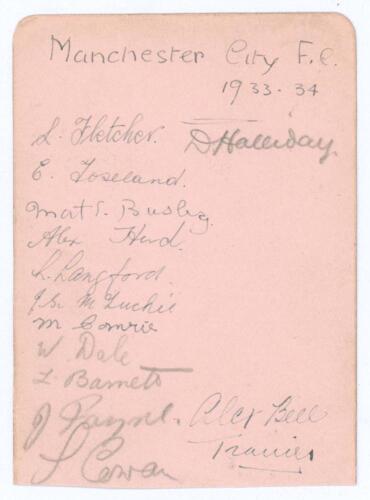 Manchester City F.C.
1933-34
L. Fletcher.
D Halliday.
E. Toseland.
Matt. Busby.
Alex Herd.
L. Langford.
J. McLuckie
M Comrie
W Dale
L Barnett
J Payne.
Alex Bell
Trainer
S Cowan